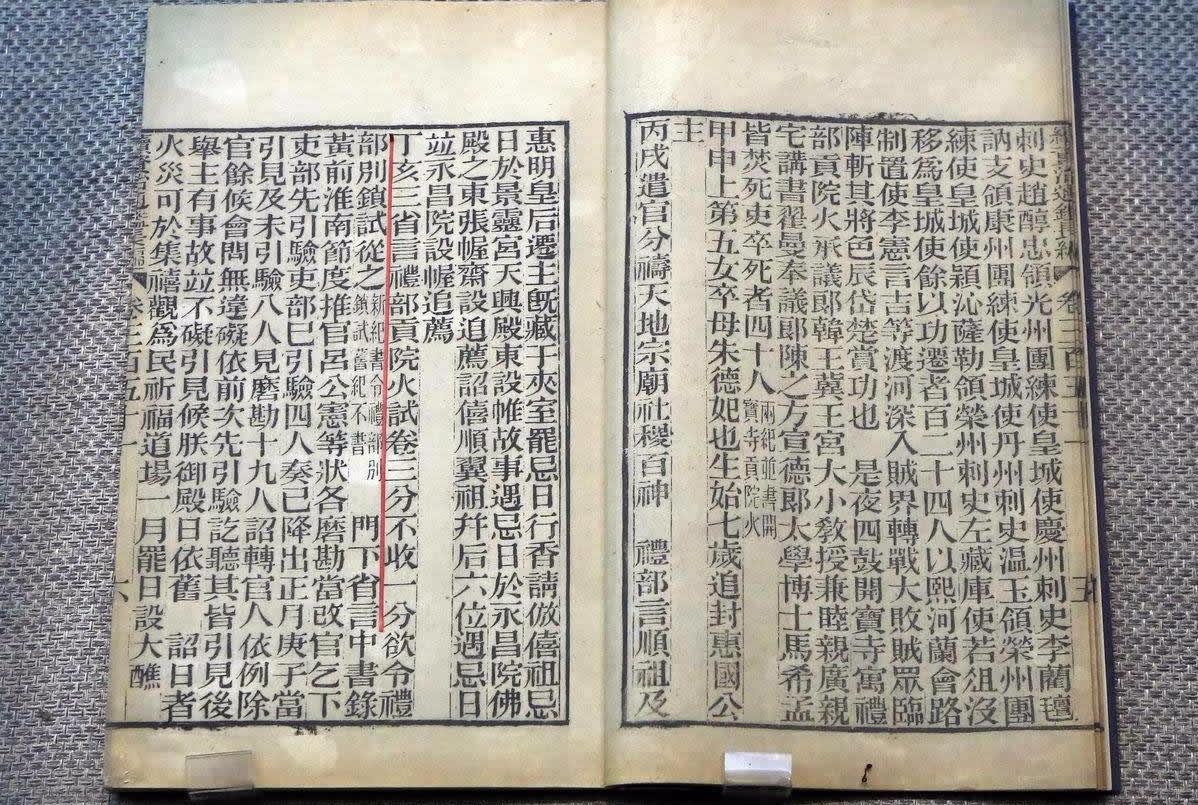 續資治通鑑長編 卷三百五十一 五
刺史趙醇忠領光州團練使皇城使慶州刺史李藺氊
訥支領康州團練使皇城使丹州刺史溫玉領榮州團
練使皇城使潁沁薩勒領榮州刺史左藏庫使若俎沒
移爲皇城使餘以功遷者百二十四人以熙河蘭會路
制置使李憲言吉等渡河深入賊界轉戰大敗賊眾臨
陣斬其將色辰岱楚賞功也 是夜四鼓開寶寺寓禮
部貢院火承議郎韓王冀王宮大小敎授兼睦親廣親
宅講書翟曼奉議郎陳之方宣德郎太學博士馬希孟
皆焚死吏卒死者四十人 兩紀並書開寶寺貢院火
甲申上第五女卒母朱德妃也生始七歲追封惠國公
主
丙戌遣官分禱天地宗廟社稷百神 禮部言順祖及
惠明皇后遷主既藏于夾室罷忌日行香請倣僖祖忌
日於景靈宮天興殿東設帷故事遇忌日於永昌院佛
殿之東張幄齋設追薦詔僖順翼祖幷后六位遇忌日
並永昌院設幄追薦
丁亥三省言禮部貢院火試卷三分不收一分欲令禮
部別鎖試從之 新紀書令禮部別鎖試舊紀不書 門下省言中書錄
黃前淮南節度推官呂公憲等狀各磨勘當改官乞下
吏部先引驗吏部已引驗四人奏已降出正月庚子當
引見及未引驗八人見磨勘十九人詔轉官人依例除
官餘候會問無違礙依前次先引驗訖聽其皆引見後
舉主有事故並不礙引見候朕御殿日依舊 詔日者
火災可於集禧觀爲民祈福道場一月罷日設大醮
續資治通鑑長編 卷三百五十一 六